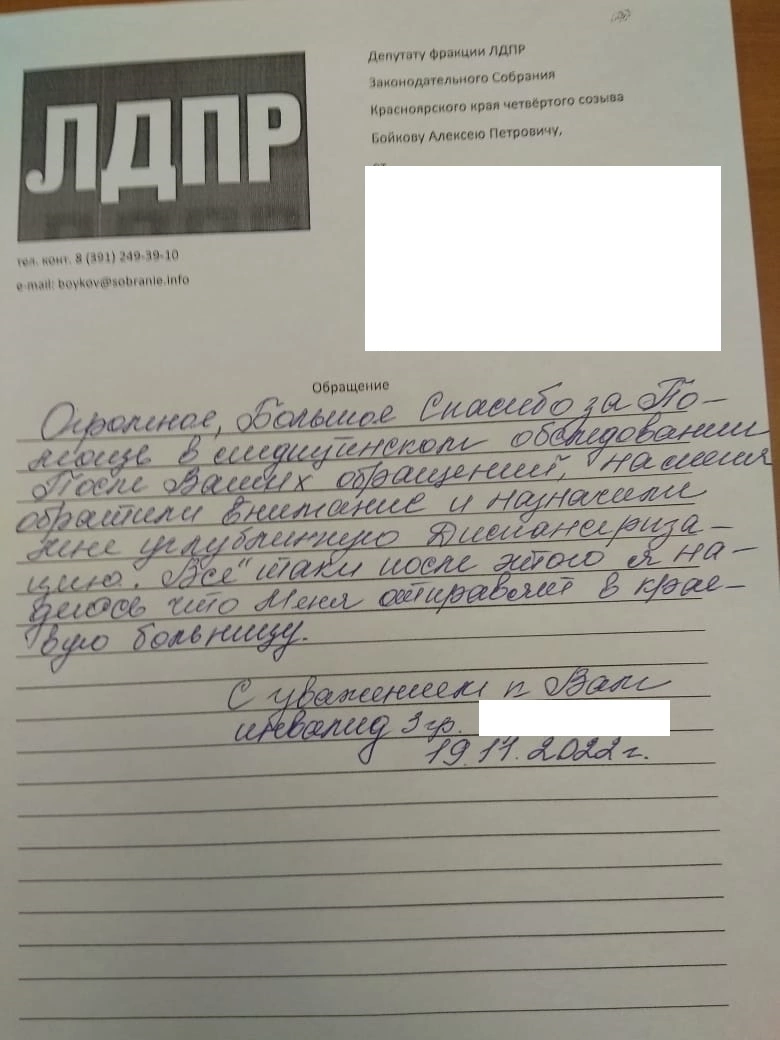 ЛДПР
тел. конт. 8 (391) 249-39-10
e-mail: boykov@sobranie.info
Депутату фракции ЛДПР
Законодательного Собрания
Красноярского края четвёртого созыва
Бойкову Алексею Петровичу,
от
Обращение
Огромное, Большое Спасибо за По-
мощь в медицинском обследовании
После Ваших обращений, на меня
обратили внимание и назначили
мне углубленную Диспансериза-
цию. Всё таки после этого я на-
деюсь что Меня отправят в крае-
вую больницу.
С уважением к Вам
инвалид 3 гр.
19.11.2022 г.